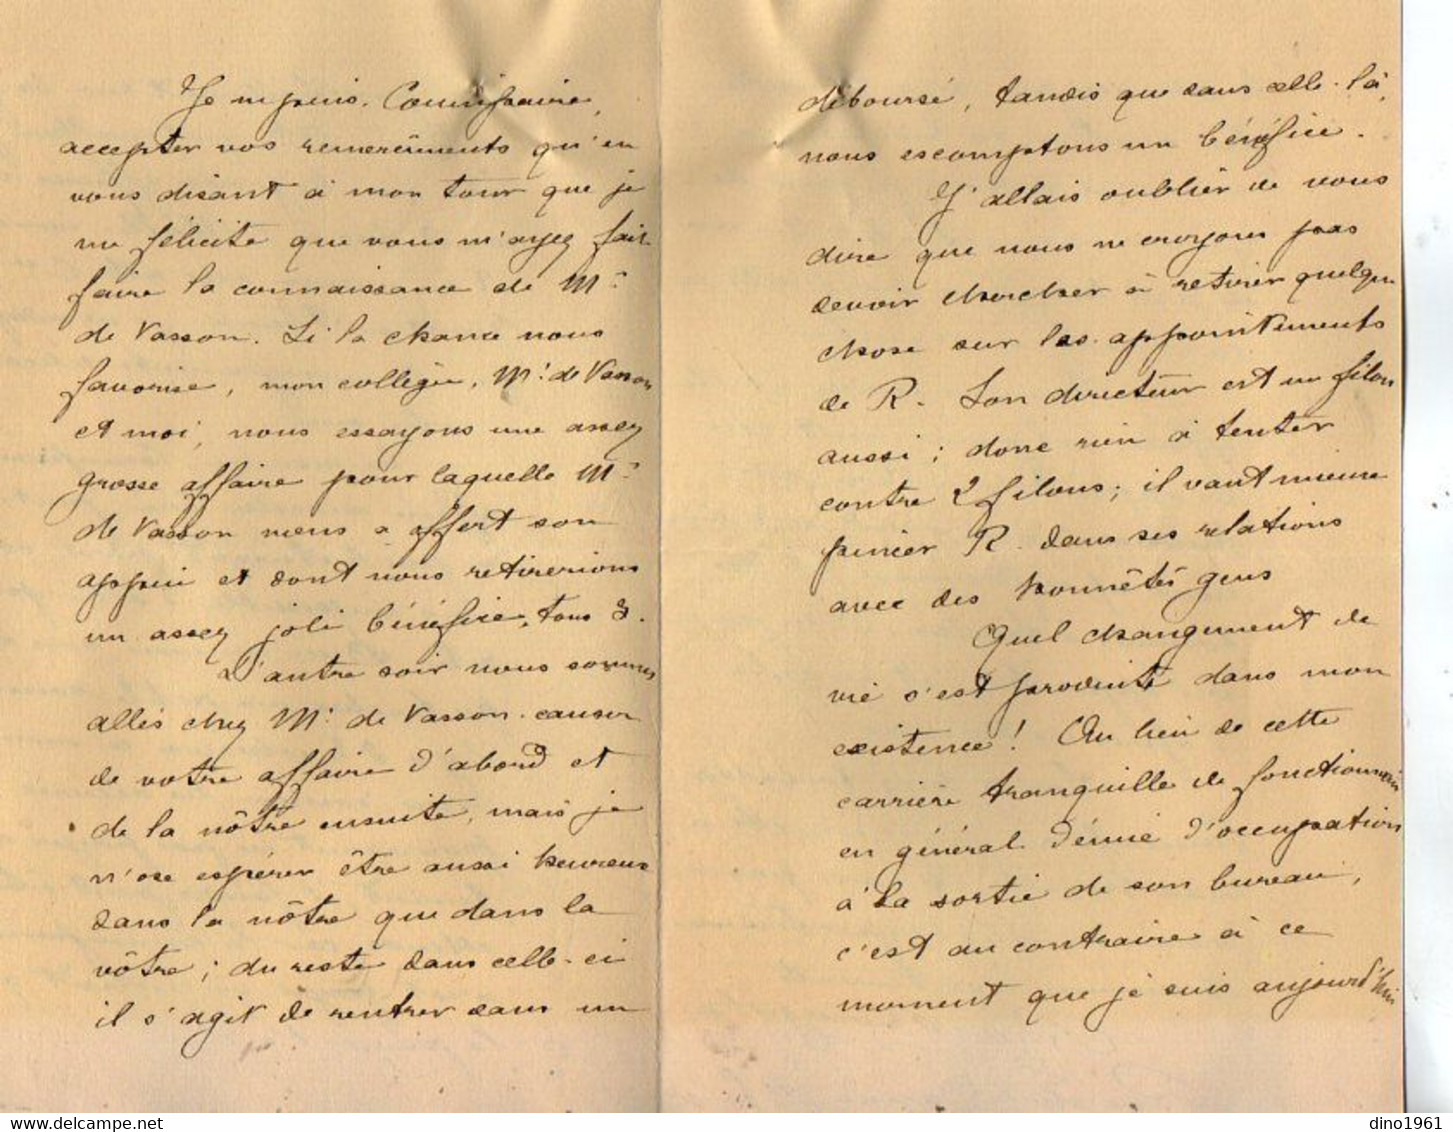 Je ne puis, Commissaire,
accepter vos remerciments qu'en
vous disant à mon tour que je
me félicite que vous m'ayez fait
faire la connaissance de Mr
de Vasson. Si la chance nous
favorise, mon collègue, Mr de Vasson
et moi, nous essayons une assez
grosse affaire pour laquelle Mr
de Vasson nous a offert son
appui et dont nous retirerions
un assez joli bénéfice, tous 3.
L'autre soir nous sommes
allés chez Mr de Vasson causer
de votre affaire d'abord et
de la nôtre ensuite, mais je
n'ose espérer être aussi heureux
dans la nôtre que dans la
vôtre ; du reste dans celle-ci
il s'agit de rentrer dans un
déboursé, tandis que dans celle-là,
nous escomptons un bénéfice.
J'allais oublier de vous
dire que nous ne croyons pas
devoir chercher à retirer quelque
chose sur les appointements
de R. Son directeur est un filou
aussi ; donc rien à tenter
contre 2 filous ; il vaut mieux
pincer R. dans ses relations
avec des honnêtes gens
Quel changement de
vie s'est produit dans mon
existence ! Au lieu de cette
carrière tranquille de fonctionnaire
en général dénué d'occupations
à la sortie de son bureau,
c'est au contraire à ce
moment que je suis aujourd'hui
dino1961